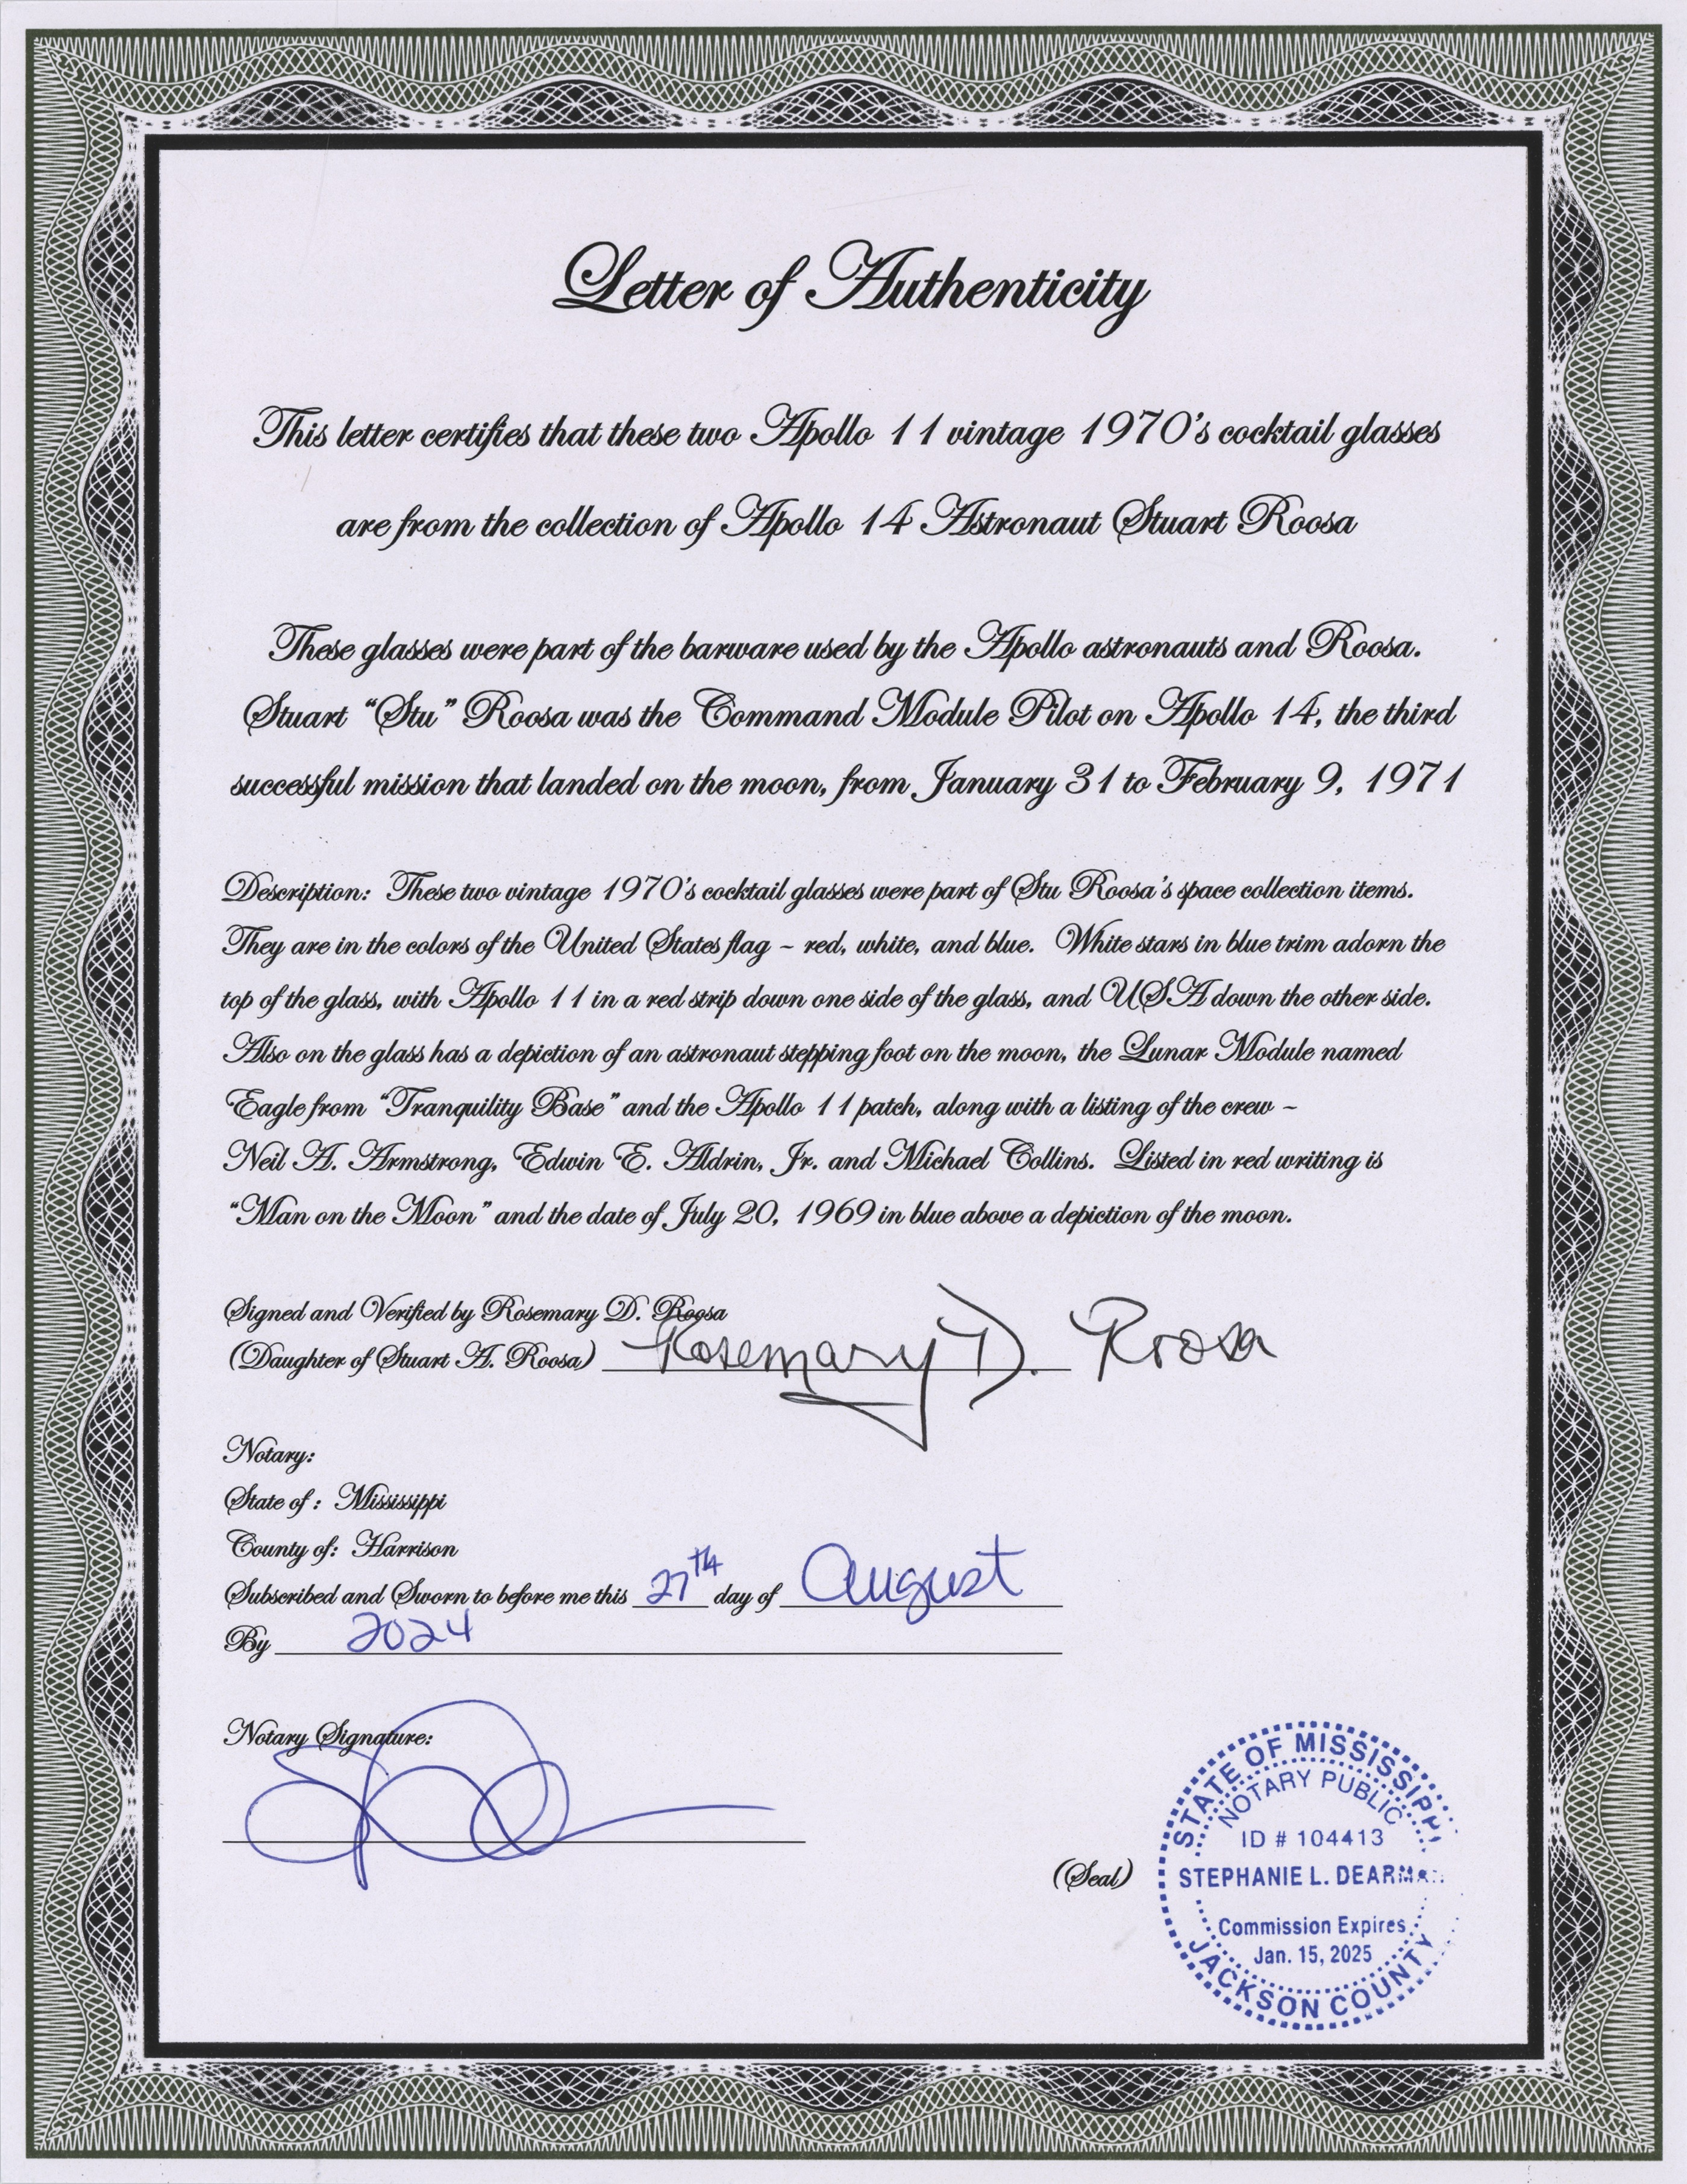 Letter of Authenticity
This letter certifies that these two Apollo 11 vintage 1970's cocktail glasses
are from the collection of Apollo 14 Astronaut Stuart Roosa
These glasses were part of the barware used by the Apollo astronauts and Roosa.
Stuart "Stu" Roosa was the Command Module Pilot on Apollo 14, the third
successful mission that landed on the moon, from January 31 to February 9, 1971
Description: These two vintage 1970's cocktail glasses were part of Stu Roosa's space collection items.
They are in the colors of the United States flag ~ red, white, and blue. White stars in blue trim adorn the
top of the glass, with Apollo 11 in a red strip down one side of the glass, and USA down the other side.
Also on the glass has a depiction of an astronaut stepping foot on the moon, the Lunar Module named
Eagle from "Tranquility Base" and the Apollo 11 patch, along with a listing of the crew ~
Neil A. Armstrong, Edwin E. Aldrin, Jr. and Michael Collins. Listed in red writing is
"Man on the Moon" and the date of July 20, 1969 in blue above a depiction of the moon.
Signed and Verified by Rosemary D. Roosa
(Daughter of Stuart A. Roosa) Rosemary D. Roosa
Notary:
State of : Mississippi
County of: Harrison
Subscribed and Sworn to before me this 27th day of August
By 2024
Notary Signature:
(Seal)
STATE OF MISSISSIPPI
NOTARY PUBLIC
ID # 104413
STEPHANIE L. DEARMAN
Commission Expires
Jan. 15, 2025
JACKSON COUNTY